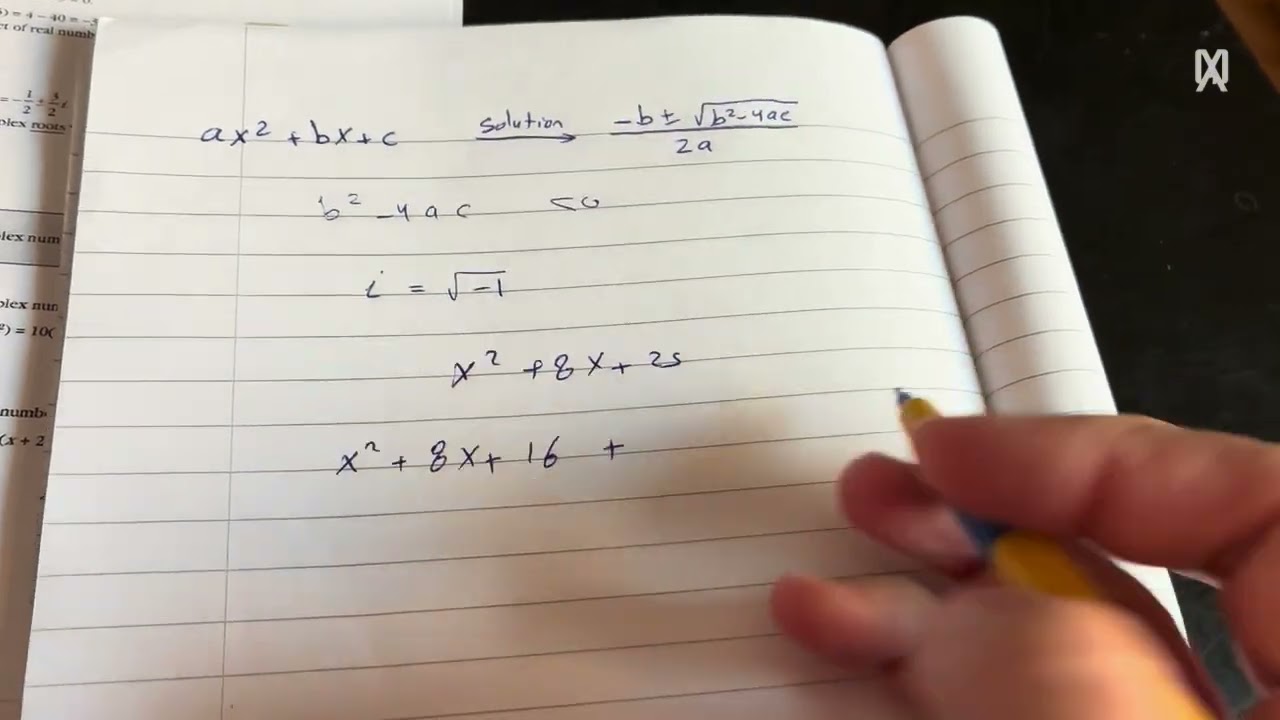 ) = 4 - 40 = -3
et of real numb
= -1/2 ± 3/2 i
plex roots
lex num
plex nun
²) = 10(
numb
(x + 2
ax² + bx + c solution → (-b ± √(b² - 4ac))/2a
b² - 4ac <0
i = √-1
x² + 8x + 25
x² + 8x + 16 +